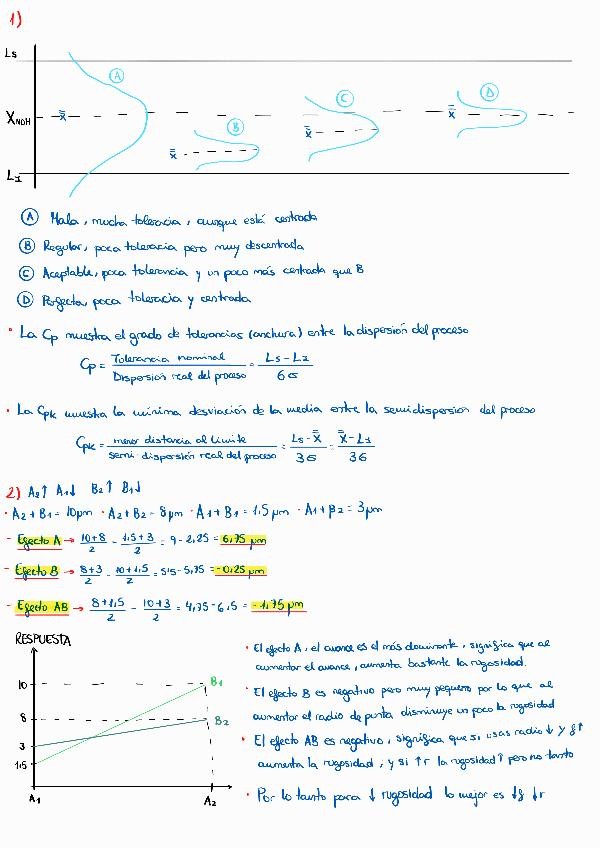 1)
Ls
A
B
C
D
XNOM
x̿
x̿
x̿
x̿
LI
A Mala, mucha tolerancia, aunque está centrada
B Regular, poca tolerancia pero muy descentrada
C Aceptable, poca tolerancia y un poco más centrada que B
D Perfecta, poca tolerancia y centrada
• La Cp muestra el grado de tolerancias (anchura) entre la dispersión del proceso
Cp = Tolerancia nominal / Dispersión real del proceso = Ls - LI / 6σ
• La Cpk muestra la mínima desviación de la media entre la semidispersión del proceso
Cpk = menor distancia al límite / semi-dispersión real del proceso = Ls - x̿ / 3σ = x̿ - LI / 3σ
2) A2↑ A1↓ B2↑ B1↓
• A2 + B1 = 10μm • A2 + B2 = 8μm • A1 + B1 = 1,5μm • A1 + B2 = 3μm
- Efecto A → 10+8 / 2 - 1,5+3 / 2 = 9 - 2,25 = 6,75 μm
- Efecto B → 8+3 / 2 - 10+1,5 / 2 = 5'5 - 5,75 = -0,25 μm
- Efecto AB → 8+1,5 / 2 - 10+3 / 2 = 4,75 - 6,5 = -1,75 μm
RESPUESTA
10
8
3
1,5
B1
B2
A1
A2
• El efecto A, el avance es el más dominante, significa que al
aumentar el avance, aumenta bastante la rugosidad.
• El efecto B es negativo pero muy pequeño por lo que al
aumentar el radio de punta disminuye un poco la rugosidad
• El efecto AB es negativo, significa que si usas radio ↓ y f↑
aumenta la rugosidad, y si ↑r la rugosidad ↑ pero no tanto
• Por lo tanto para ↓ rugosidad lo mejor es ↓f ↓r